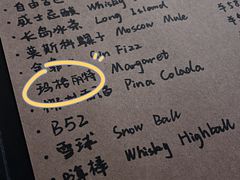 自由古
威士忌酸 Whisky
长岛冰茶 Long Island
莫斯科骡子 Moscow Mule
金菲 Fizz
玛格丽特 Margaret
Pina Colada
B52
雪球 Snow Ball
嗨棒 Whisky Highball